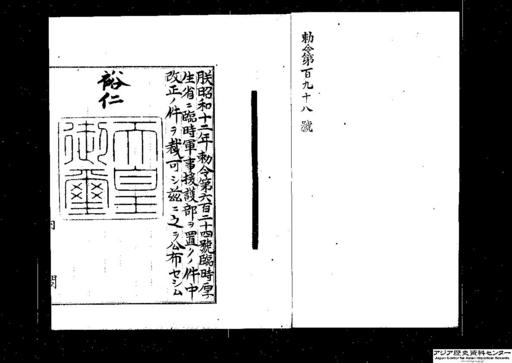 勅令第百九十八號
朕昭和十二年勅令第六百二十四號臨時厚
生省ニ臨時軍事援護部ヲ置クノ件中
改正ノ件ヲ裁可シ茲ニ之ヲ公布セシム
裕仁
天皇
御璽
内閣
アジア歴史資料センター
Japan Center for Asian Historical Records